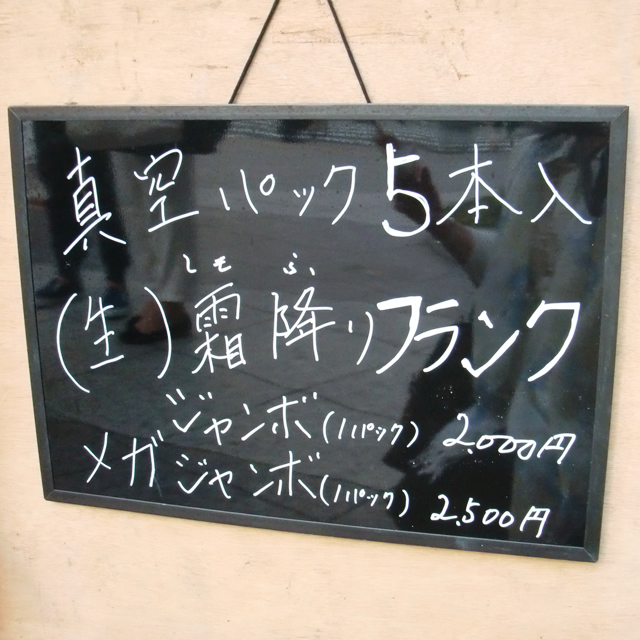 真空パック5本入
しも ふ
(生)霜降りフランク
ジャンボ(1パック) 2.000円
メガジャンボ(1パック) 2.500円